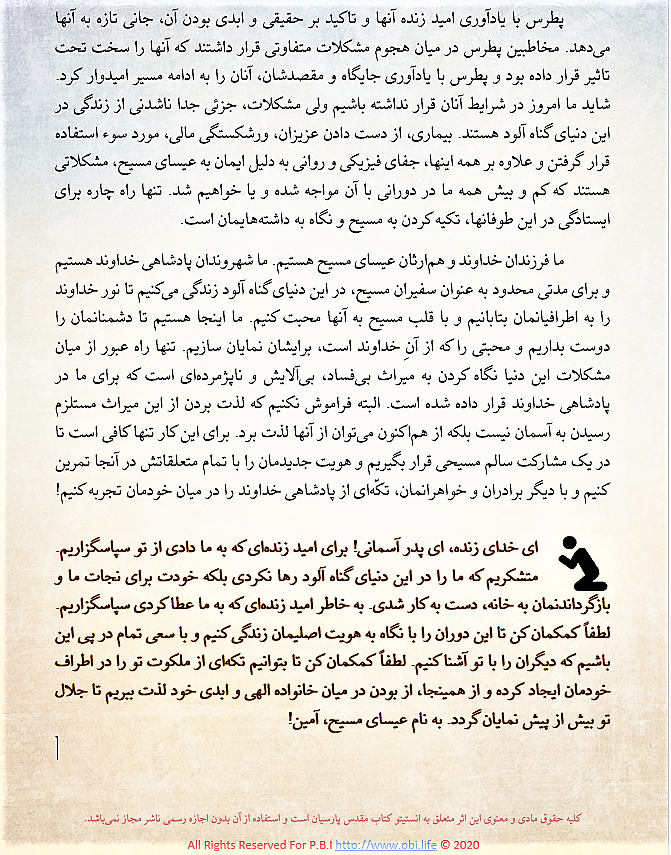 پطرس با یادآوری امید زنده آنها و تاکید بر حقیقی و ابدی بودن آن، جانی تازه به آنها
می‌دهد. مخاطبین پطرس در میان هجوم مشکلات متفاوتی قرار داشتند که آنها را سخت تحت
تاثیر قرار داده بود و پطرس با یادآوری جایگاه و مقصدشان، آنان را به ادامه مسیر امیدوار کرد.
شاید ما امروز در شرایط آنان قرار نداشته باشیم ولی مشکلات، جزئی جدا ناشدنی از زندگی در
این دنیای گناه آلود هستند. بیماری، از دست دادن عزیزان، ورشکستگی مالی، مورد سوء استفاده
قرار گرفتن و علاوه بر همه اینها، جفای فیزیکی و روانی به دلیل ایمان به عیسای مسیح، مشکلاتی
هستند که کم و بیش همه ما در دورانی با آن مواجه شده و یا خواهیم شد. تنها راه چاره برای
ایستادگی در این طوفانها، تکیه کردن به مسیح و نگاه به داشته‌هایمان است.
ما فرزندان خداوند و هم‌ارثان عیسای مسیح هستیم. ما شهروندان پادشاهی خداوند هستیم
و برای مدتی محدود به عنوان سفیران مسیح، در این دنیای گناه آلود زندگی می‌کنیم تا نور خداوند
را به اطرافیانمان بتابانیم و با قلب مسیح به آنها محبت کنیم. ما اینجا هستیم تا دشمنانمان را
دوست بداریم و محبتی را که از آنِ خداوند است، برایشان نمایان سازیم. تنها راه عبور از میان
مشکلات این دنیا نگاه کردن به میراث بی‌فساد، بی‌آلایش و ناپژمرده‌ای است که برای ما در
پادشاهی خداوند قرار داده شده است. البته فراموش نکنیم که لذت بردن از این میراث مستلزم
رسیدن به آسمان نیست بلکه از هم‌اکنون می‌توان از آنها لذت برد. برای این کار تنها کافی است تا
در یک مشارکت سالم مسیحی قرار بگیریم و هویت جدیدمان را با تمام متعلقاتش در آنجا تمرین
کنیم و با دیگر برادران و خواهرانمان، تکّه‌ای از پادشاهی خداوند را در میان خودمان تجربه کنیم!
ای خدای زنده، ای پدر آسمانی! برای امید زنده‌ای که به ما دادی از تو سپاسگزاریم.
متشکریم که ما را در این دنیای گناه آلود رها نکردی بلکه خودت برای نجات ما و
بازگرداندنمان به خانه، دست به کار شدی. به خاطر امید زنده‌ای که به ما عطا کردی سپاسگزاریم.
لطفاً کمکمان کن تا این دوران را با نگاه به هویت اصلیمان زندگی کنیم و با سعی تمام در پی این
باشیم که دیگران را با تو آشنا کنیم. لطفاً کمکمان کن تا بتوانیم تکه‌ای از ملکوت تو را در اطراف
خودمان ایجاد کرده و از همینجا، از بودن در میان خانواده الهی و ابدی خود لذت ببریم تا جلال
تو بیش از پیش نمایان گردد. به نام عیسای مسیح، آمین!
کلیه حقوق مادی و معنوی این اثر متعلق به انستیتو کتاب مقدس پارسیان است و استفاده از آن بدون اجازه رسمی ناشر مجاز نمی‌باشد.
All Rights Reserved For P.B.I http://www.pbi.life © 2020